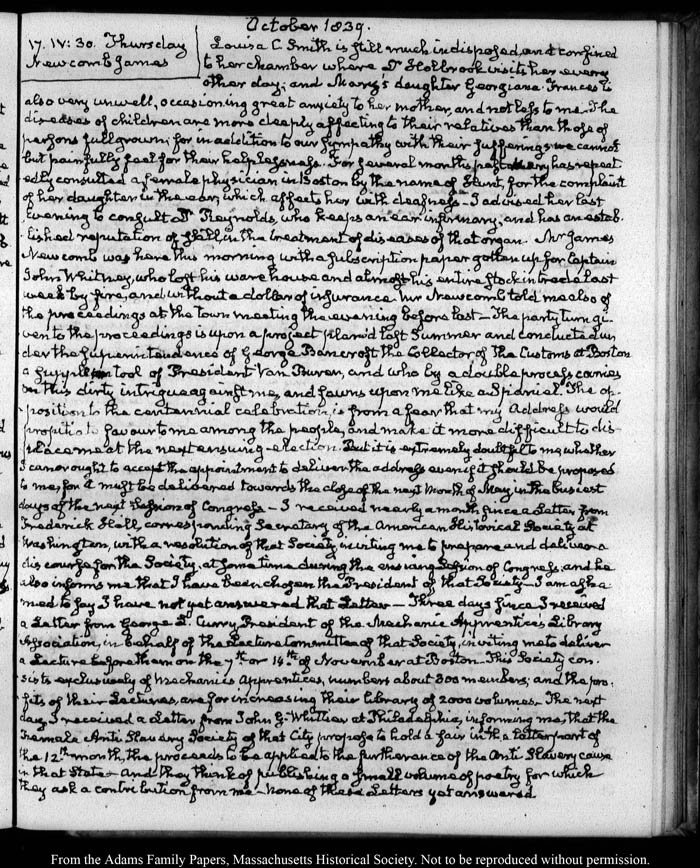 October 1839.
17. IV: 30. Thursday
Newcomb James
Louisa C. Smith is still much indisposed, and confined
to her chamber where Dr Holbrook visits her every
other day; and Mary's daughter Georgiana Frances is
also very unwell, occasioning great anxiety to her mother, and not less to me. The
diseases of children are more deeply affecting to their relatives than those of
persons full grown; for in addition to our sympathy with their sufferings we cannot
but painfully feel for their helplessness. For several months past Mary has repeat
edly consulted a female physician in Boston by the name of Hunt, for the complaint
of her daughter in the ear, which affects her with deafness. I advised her last
Evening to consult Dr Reynolds, who keeps an ear infirmary, and has an estab-
lished reputation of skill in the treatment of diseases of that organ. Mr James
Newcomb was here this morning with a subscription paper gotten up for Captain
John Whitney, who lost his ware house and almost his entire stock in trade last
week by fire, and without a dollar of insurance. Mr Newcomb told me also of
the proceedings at the town meeting the evening before last — The party turn gi-
ven to the proceedings is upon a project plan'd last Summer and conducted un
der the Superintendence of George Bancroft the Collector of the Customs at Boston
a supple tool of President Van Buren, and who by a double process carries
on this dirty intrigue against me, and fawns upon me like a Spaniel. The op-
position to the centennial celebration, is from a fear that my Address would
propitiate favour to me among the people, and make it more difficult to dis-
place me at the next ensuing election. But it is extremely doubtful to me whether
I can or ought to accept the appointment to deliver the address even if it should be proposed
to me, for it must be delivered towards the close of the next Month of May, in the busiest
days of the next Session of Congress — I received nearly a month since a Letter from
Frederick Hall, corresponding Secretary of the American Historical Society at
Washington, with a resolution of that Society inviting me to prepare and deliver a
discourse for the Society, at some time during the ensuing Session of Congress, and he
also informs me that I have been chosen the President of that Society — I am asha
med to say I have not yet answered that Letter — Three days since I received
a Letter from George L. Curry President of the Mechanic Apprentices Library
Association, in behalf of the Lecture Committee of that Society, inviting me to deliver
a Lecture before them on the 7th or 14th of November at Boston. This Society con-
sists exclusively of Mechanics Apprentices, numbers about 300 members; and the pro-
fits of their Lectures, are for increasing their library of 2000 volumes. The next
day I received a Letter from John G. Whittier at Philadelphia, informing me, that the
Female Anti Slavery Society of that City propose to hold a fair in the latter part of
the 12th month, the proceeds to be applied to the furtherance of the Anti Slavery cause
in that State — And they think of publishing a small volume of poetry for which
they ask a contribution from me — None of these Letters yet answered
From the Adams Family Papers, Massachusetts Historical Society. Not to be reproduced without permission.